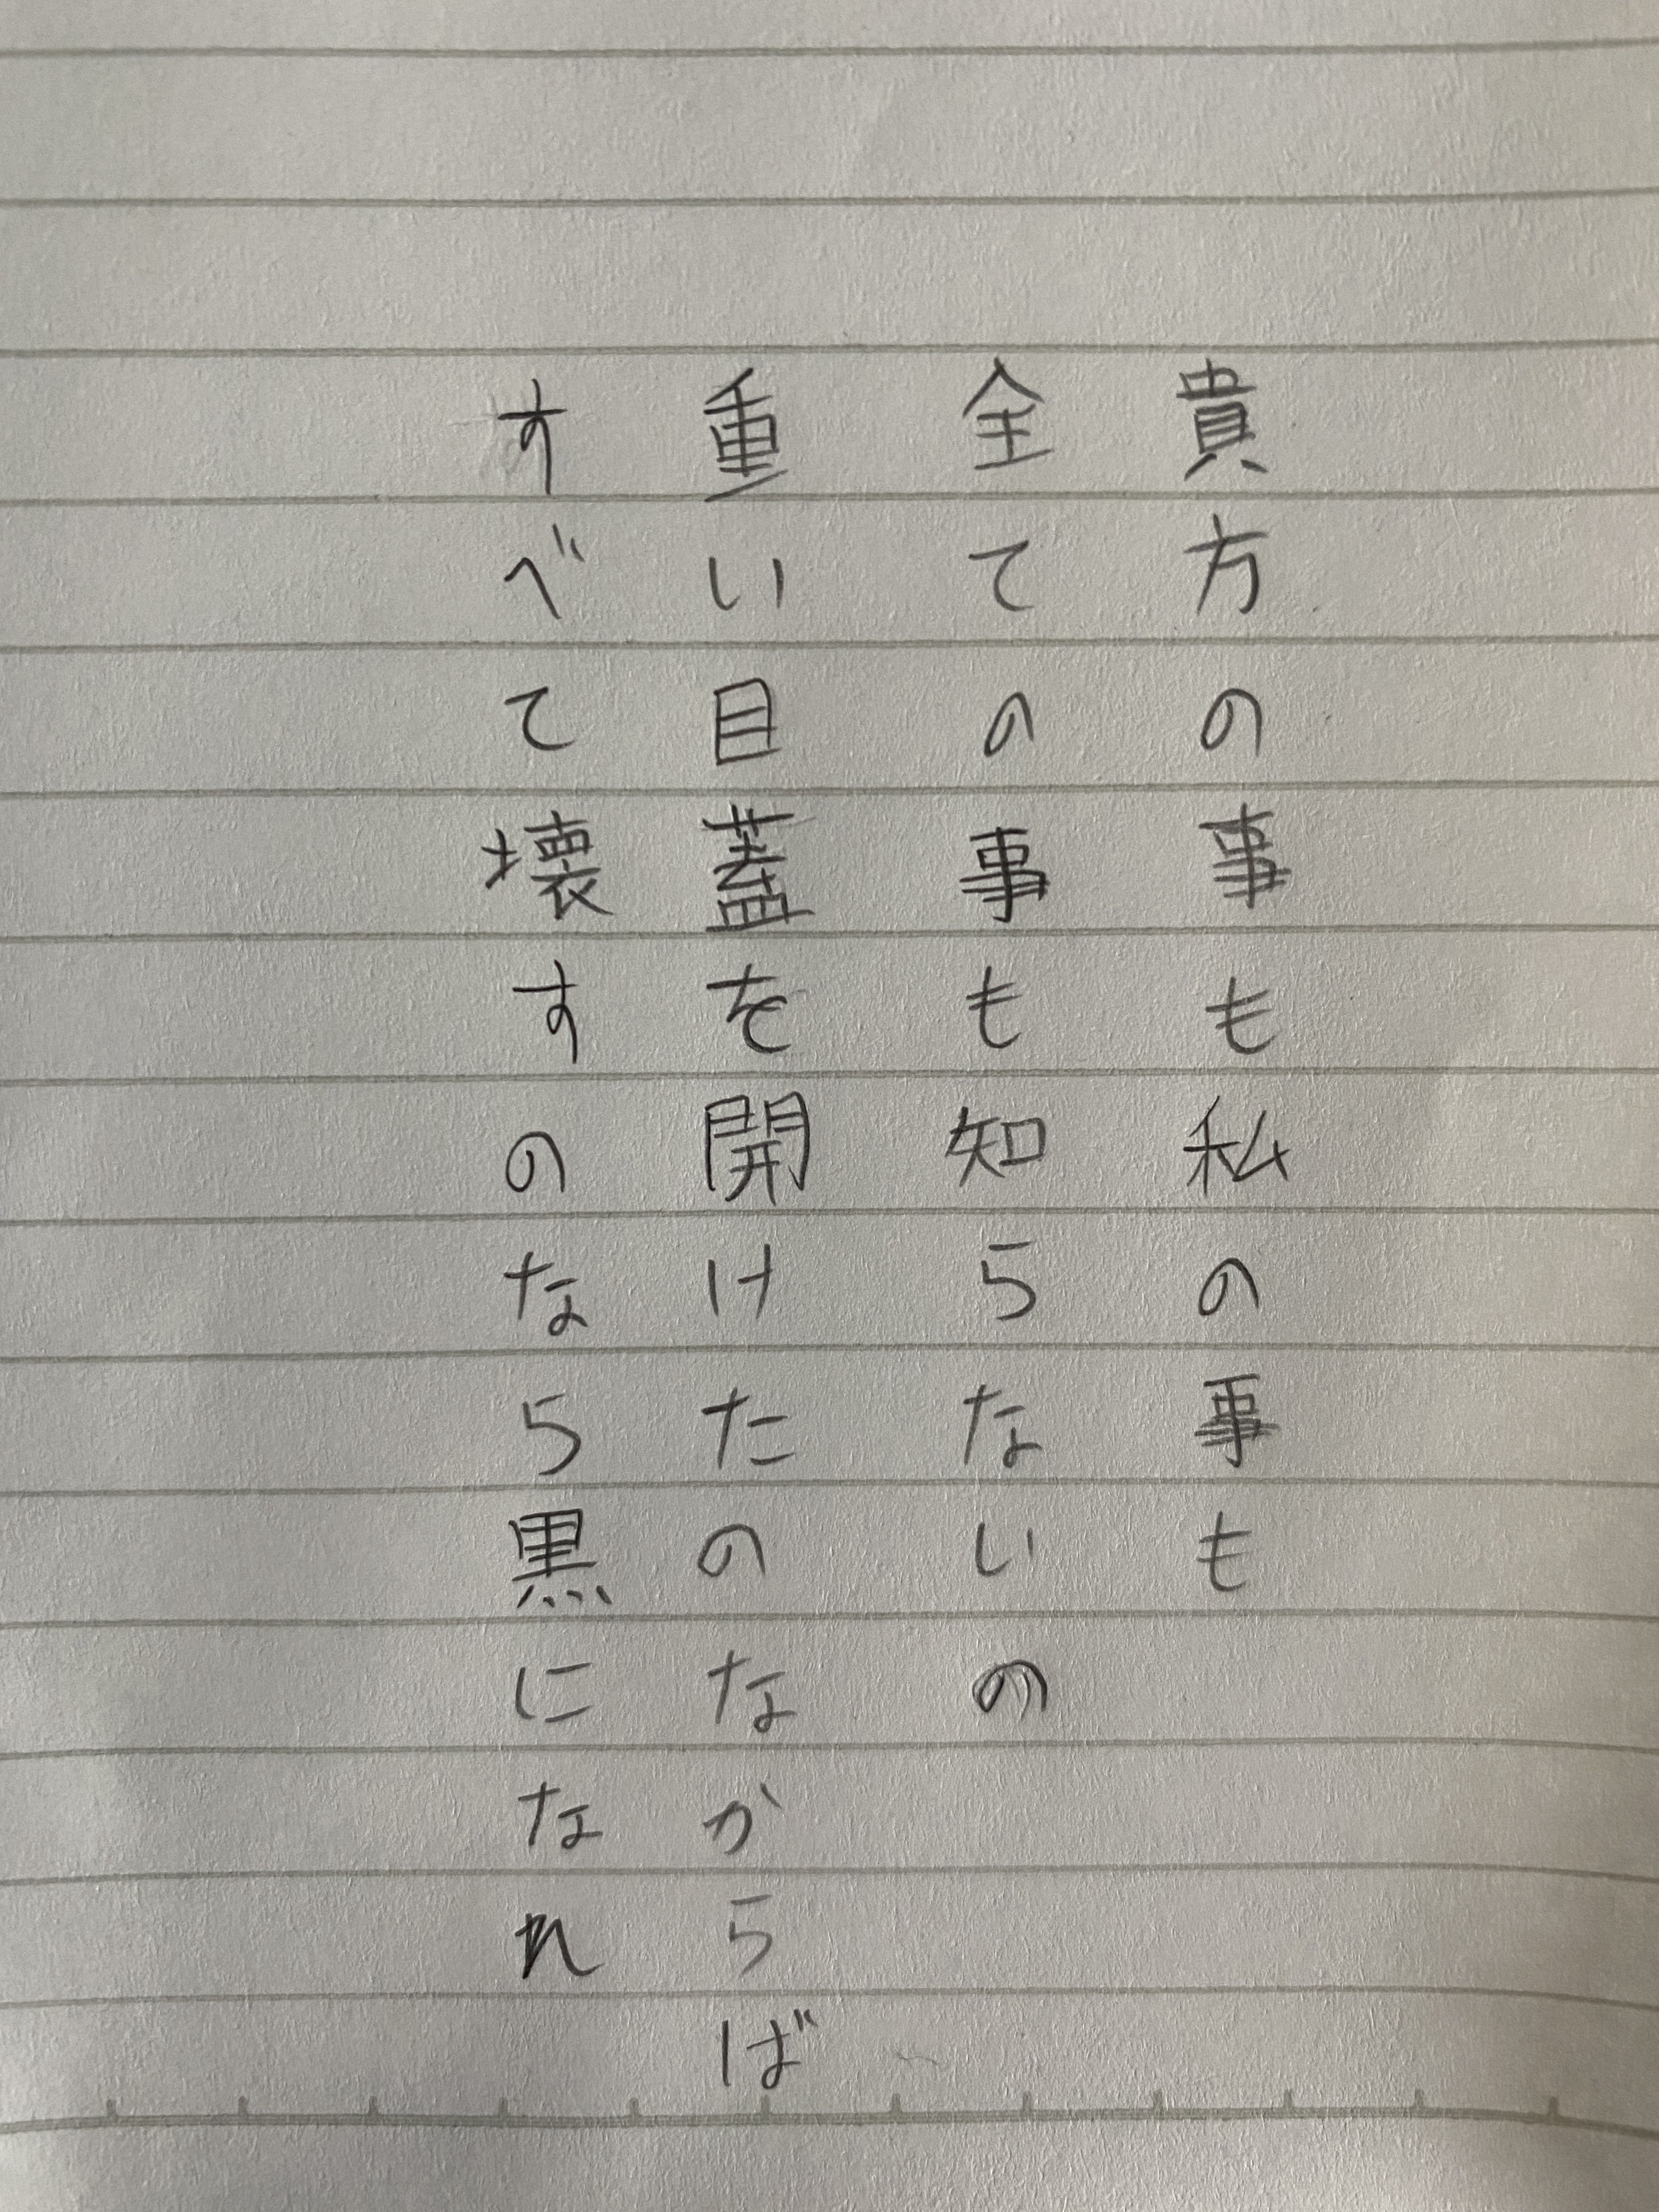 貴方の事も私の事も
全ての事も知らないの
重い目蓋を開けたのなからば
すべて壊すのなら黒になれ